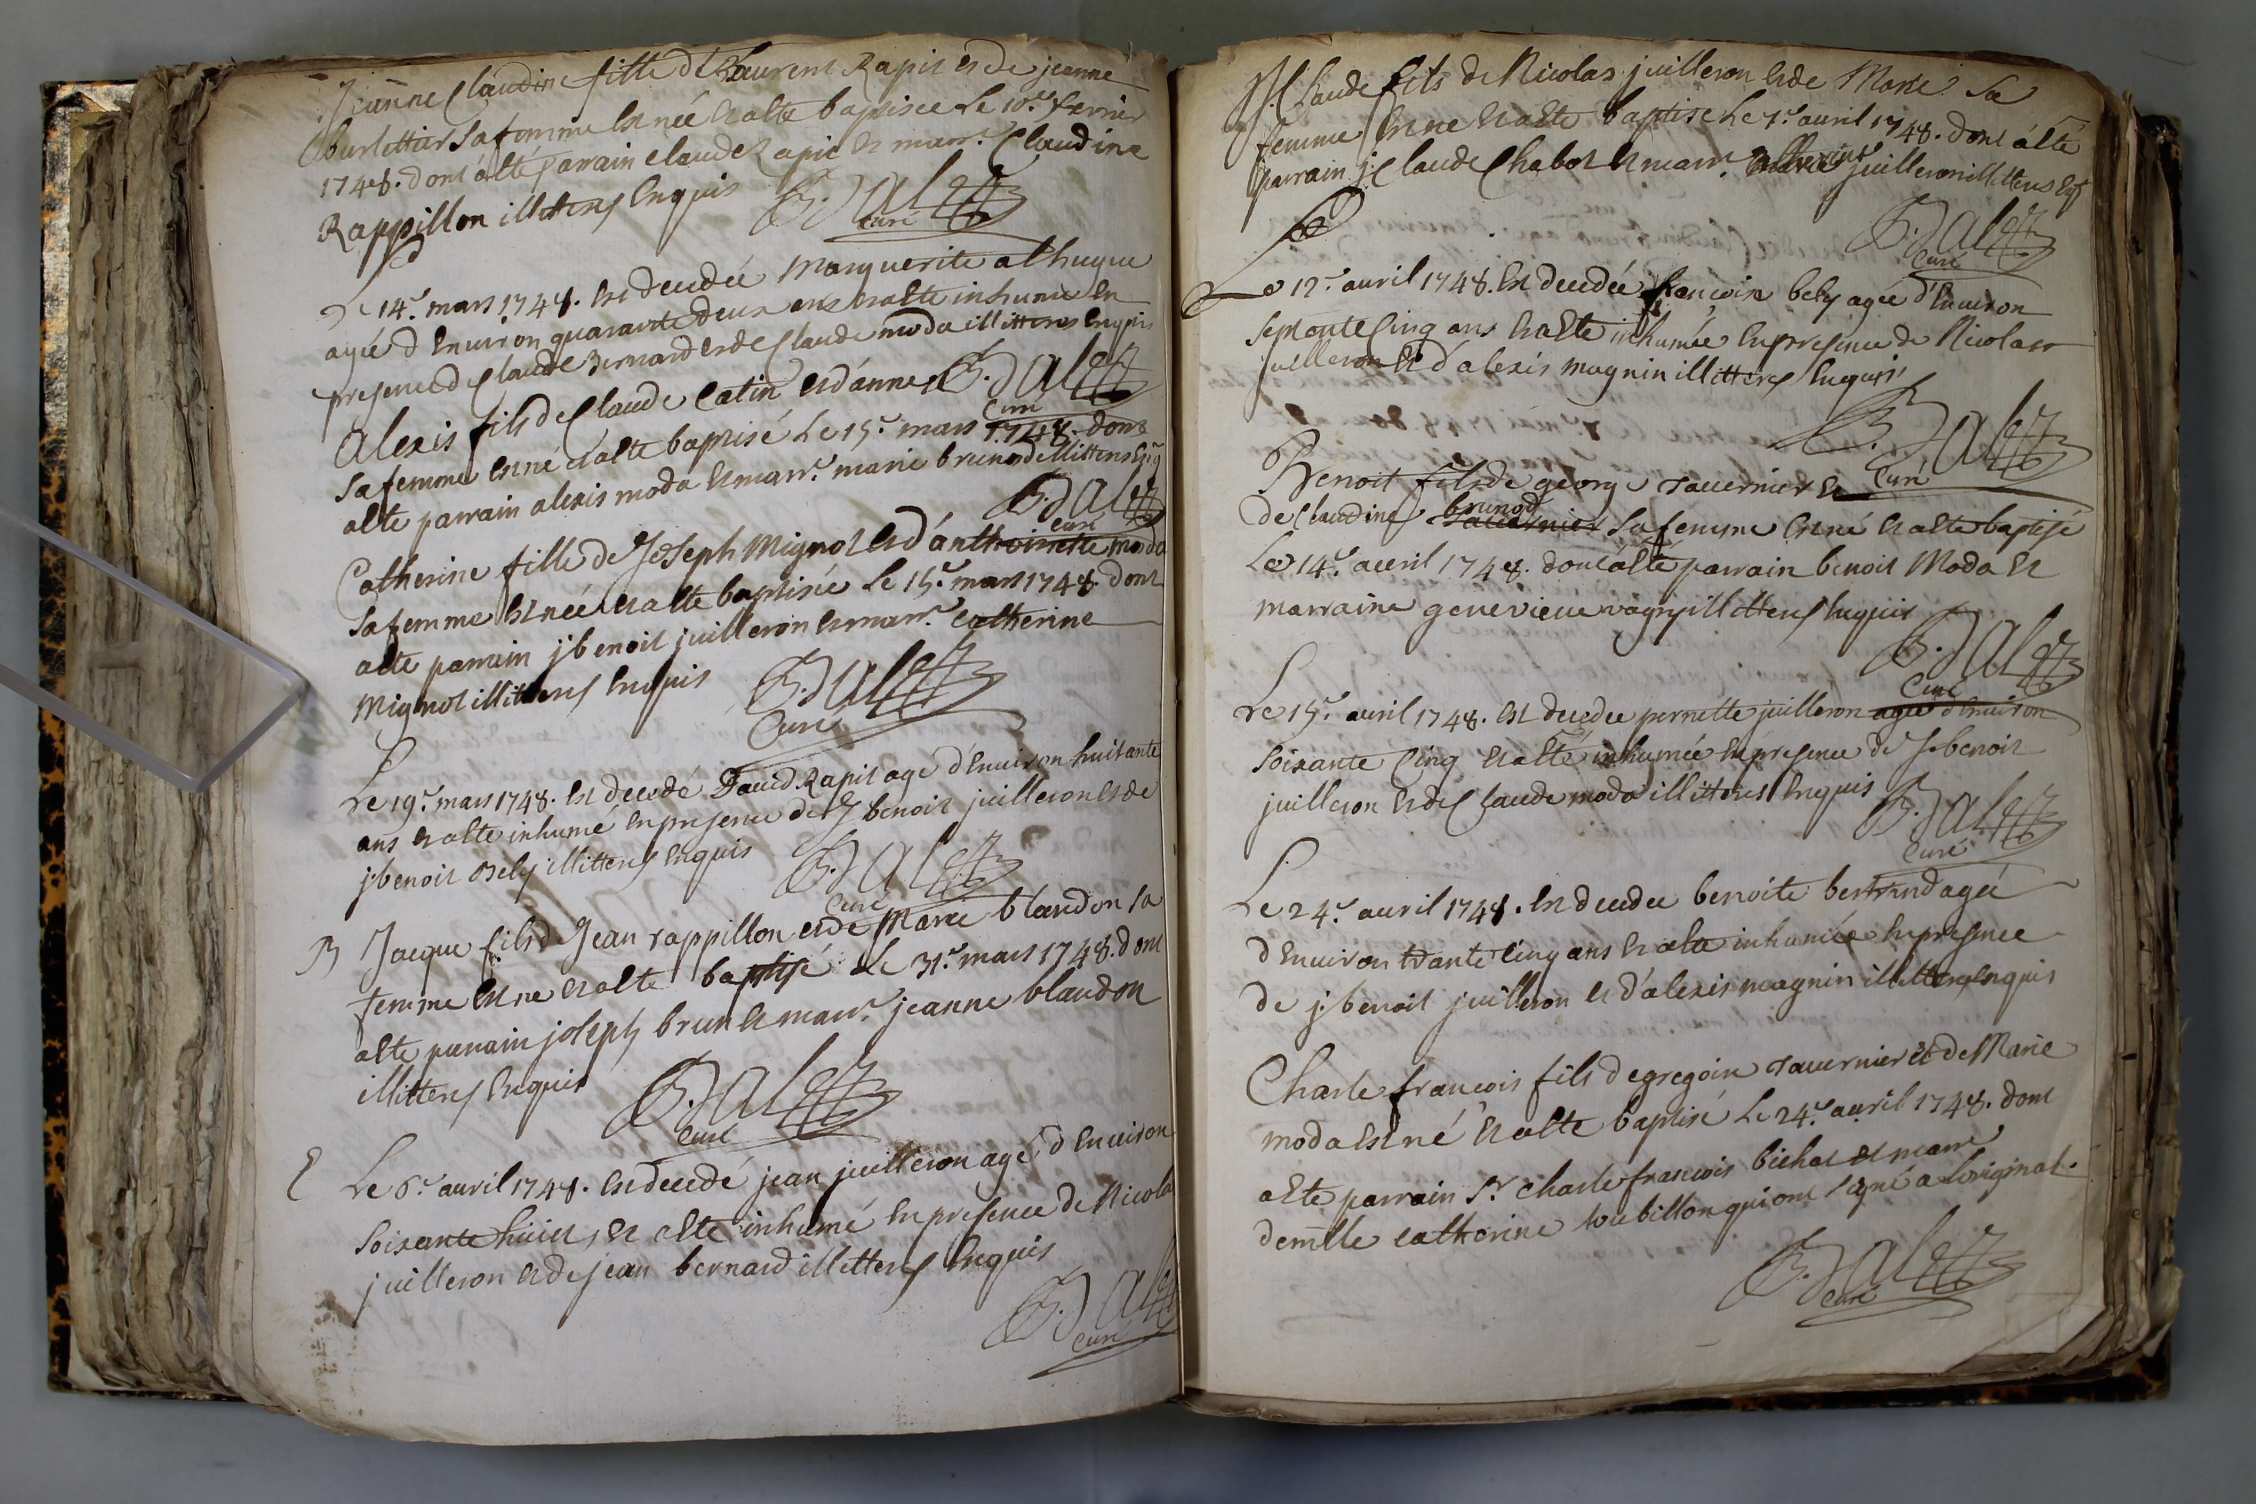 Jeanne Claudine fille de Laurent Rapit et de jeanne
sa femme est née et a été baptisée le 10.e fevrier
1748. dont a été parain Claude Rapit et marr.e Claudine
Rappillon illitterés enquis
B. Dalez
curé
Le 14.e mars 1748. est decedée Marguerite
agée d'environ quarante deux ans et a été inhumée en
presence de Claude Bernard et de Claude moda illitteres enquis
B. Dalez
curé
Alexis fils de Claude Catin et d'anne
sa femme est né et a été baptisé le 15.e mars 1748. dont
a été parrain alexis moda et marr.e marie brunod illitteres Enq
B. Dalez
curé
Catherine fille de Joseph Mignot et d'anthoinette moda
sa femme est née et a été baptisée le 15.e mars 1748. dont
a été parrain j. benoit juilleron et marr.e catherine
Mignot illitteres enquis
B. Dalez
Curé
Le 19.e mars 1748. est decedé David Rapit agé d'environ huitante
ans et a été inhumé en presence de J. benoit juilleron et de
j. benoit Bely illitteres enquis
B. Dalez
Curé
Jacque fils de Jean rappillon et de Marie blandon sa
femme est né et a été baptisé le 31.e mars 1748. dont
a été parrain joseph brun et marr.e jeanne blandon
illitteres enquis
B. Dalez
Curé
Le 6.e avril 1748. est decedé jean juilleron agé d'environ
soixante huict, et a été inhumé en presence de Nicola
juilleron et de jean bernard illitteres enquis
B. Dalez
curé
J. Claude fils de Nicolas juilleron et de Marie sa
femme est né et a été baptisé le 7.e avril 1748. dont a été
parrain j. Claude Chabot et marr. juilleron illitteres Enq
B. Dalez
Curé
Le 12.e avril 1748. est decedée francoise bely agée d'environ
septante cinq ans et a été inhumée en presence de Nicolas
juilleron et d'alexis magnin illitteres enquis
B. Dalez
Curé
Benoit fils de george Tavernier et
de Claudine brunod sa femme est né et a été baptisé
Le 14.e avril 1748. dont a été parrain benoit Moda et
marraine genevieve illitteres enquis
B. Dalez
Curé
Le 15.e avril 1748. est decedée pernette juilleron agée d'environ
soixante cinq et a été inhumée en presence de J. benoit
juilleron et de Claude moda illitteres enquis
B. Dalez
Curé
Le 24.e avril 1748. est decedée benoite bertrand agée
d'environ trante cinq ans et a été inhumée en presence
de j. benoit juilleron et d'alexis magnin illitteres enquis
Charle francois fils de gregoire Tavernier et de Marie
moda est né et a été baptisé le 24.e avril 1748. dont
a été parrain S.r Charle francois bichat et marr
demlle catherine toubillon qui ont signé a l'original.
B. Dalez
Curé